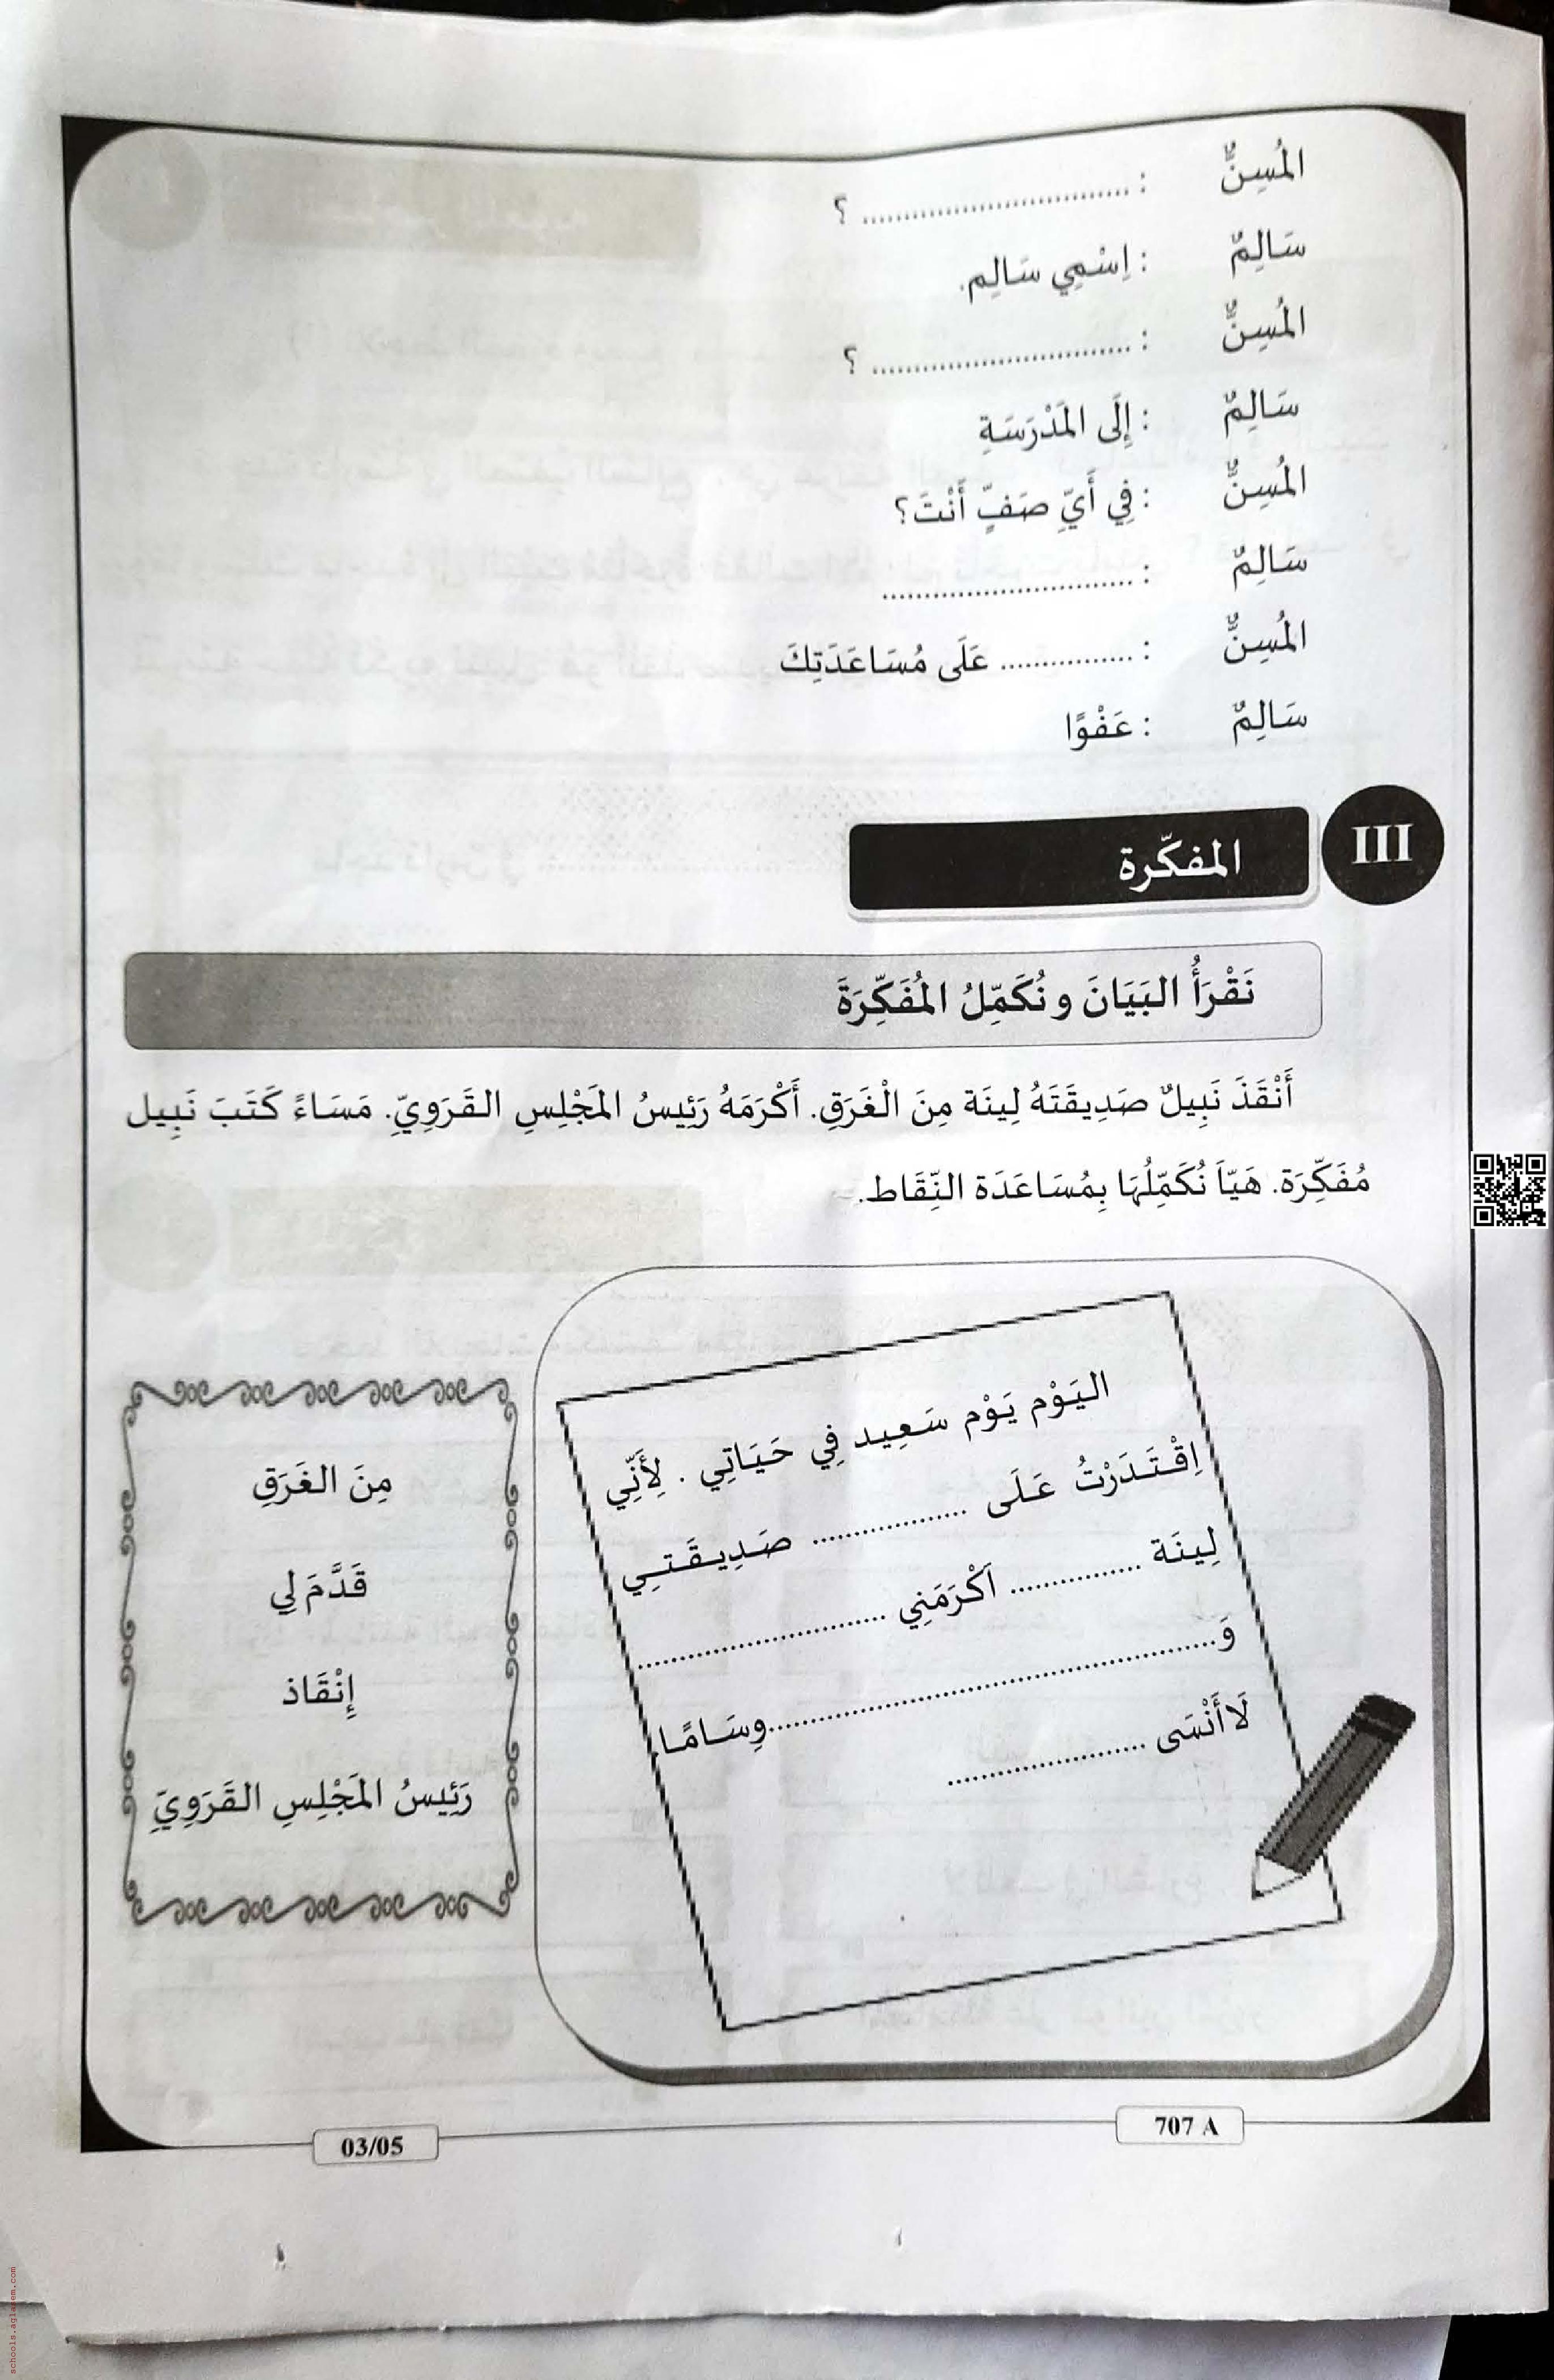 المُسِنُّ : .............................. ؟
سَالِمٌ : اِسْمِي سَالِم.
المُسِنُّ : .............................. ؟
سَالِمٌ : إِلَى المَدْرَسَةِ
المُسِنُّ : فِي أَيِّ صَفٍّ أَنْتَ؟
سَالِمٌ : ..............................
المُسِنُّ : ................ عَلَى مُسَاعَدَتِكَ
سَالِمٌ : عَفْوًا
III المفكّرة
نَقْرَأُ البَيَانَ و نُكَمِّلُ المُفَكِّرَةَ
أَنْقَذَ نَبِيلٌ صَدِيقَتَهُ لِينَة مِنَ الْغَرَقِ. أَكْرَمَهُ رَئِيسُ المَجْلِسِ القَرَوِيِّ. مَسَاءً كَتَبَ نَبِيل
مُفَكِّرَة. هَيَّا نُكَمِّلُهَا بِمُسَاعَدَة النِّقَاط.
اليَوْم يَوْم سَعِيد فِي حَيَاتِي . لِأَنِّي
اِقْتَدَرْتُ عَلَى .................. صَدِيقَتِي
لِينَة ................ اَكْرَمَنِي ..............................
وَ......................................................وِسَامًا.
لَا أَنْسَى ........................
مِنَ الغَرَقِ
قَدَّمَ لِي
إِنْقَاذ
رَئِيسُ المَجْلِسِ القَرَوِيِّ
03/05
707 A
schools.aglasem.com